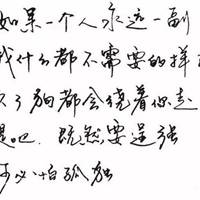 如果一个人永远一副
我什么都不需要的样
久了狗都会绕着你走
是吧，既然要逞强
何必怕孤独